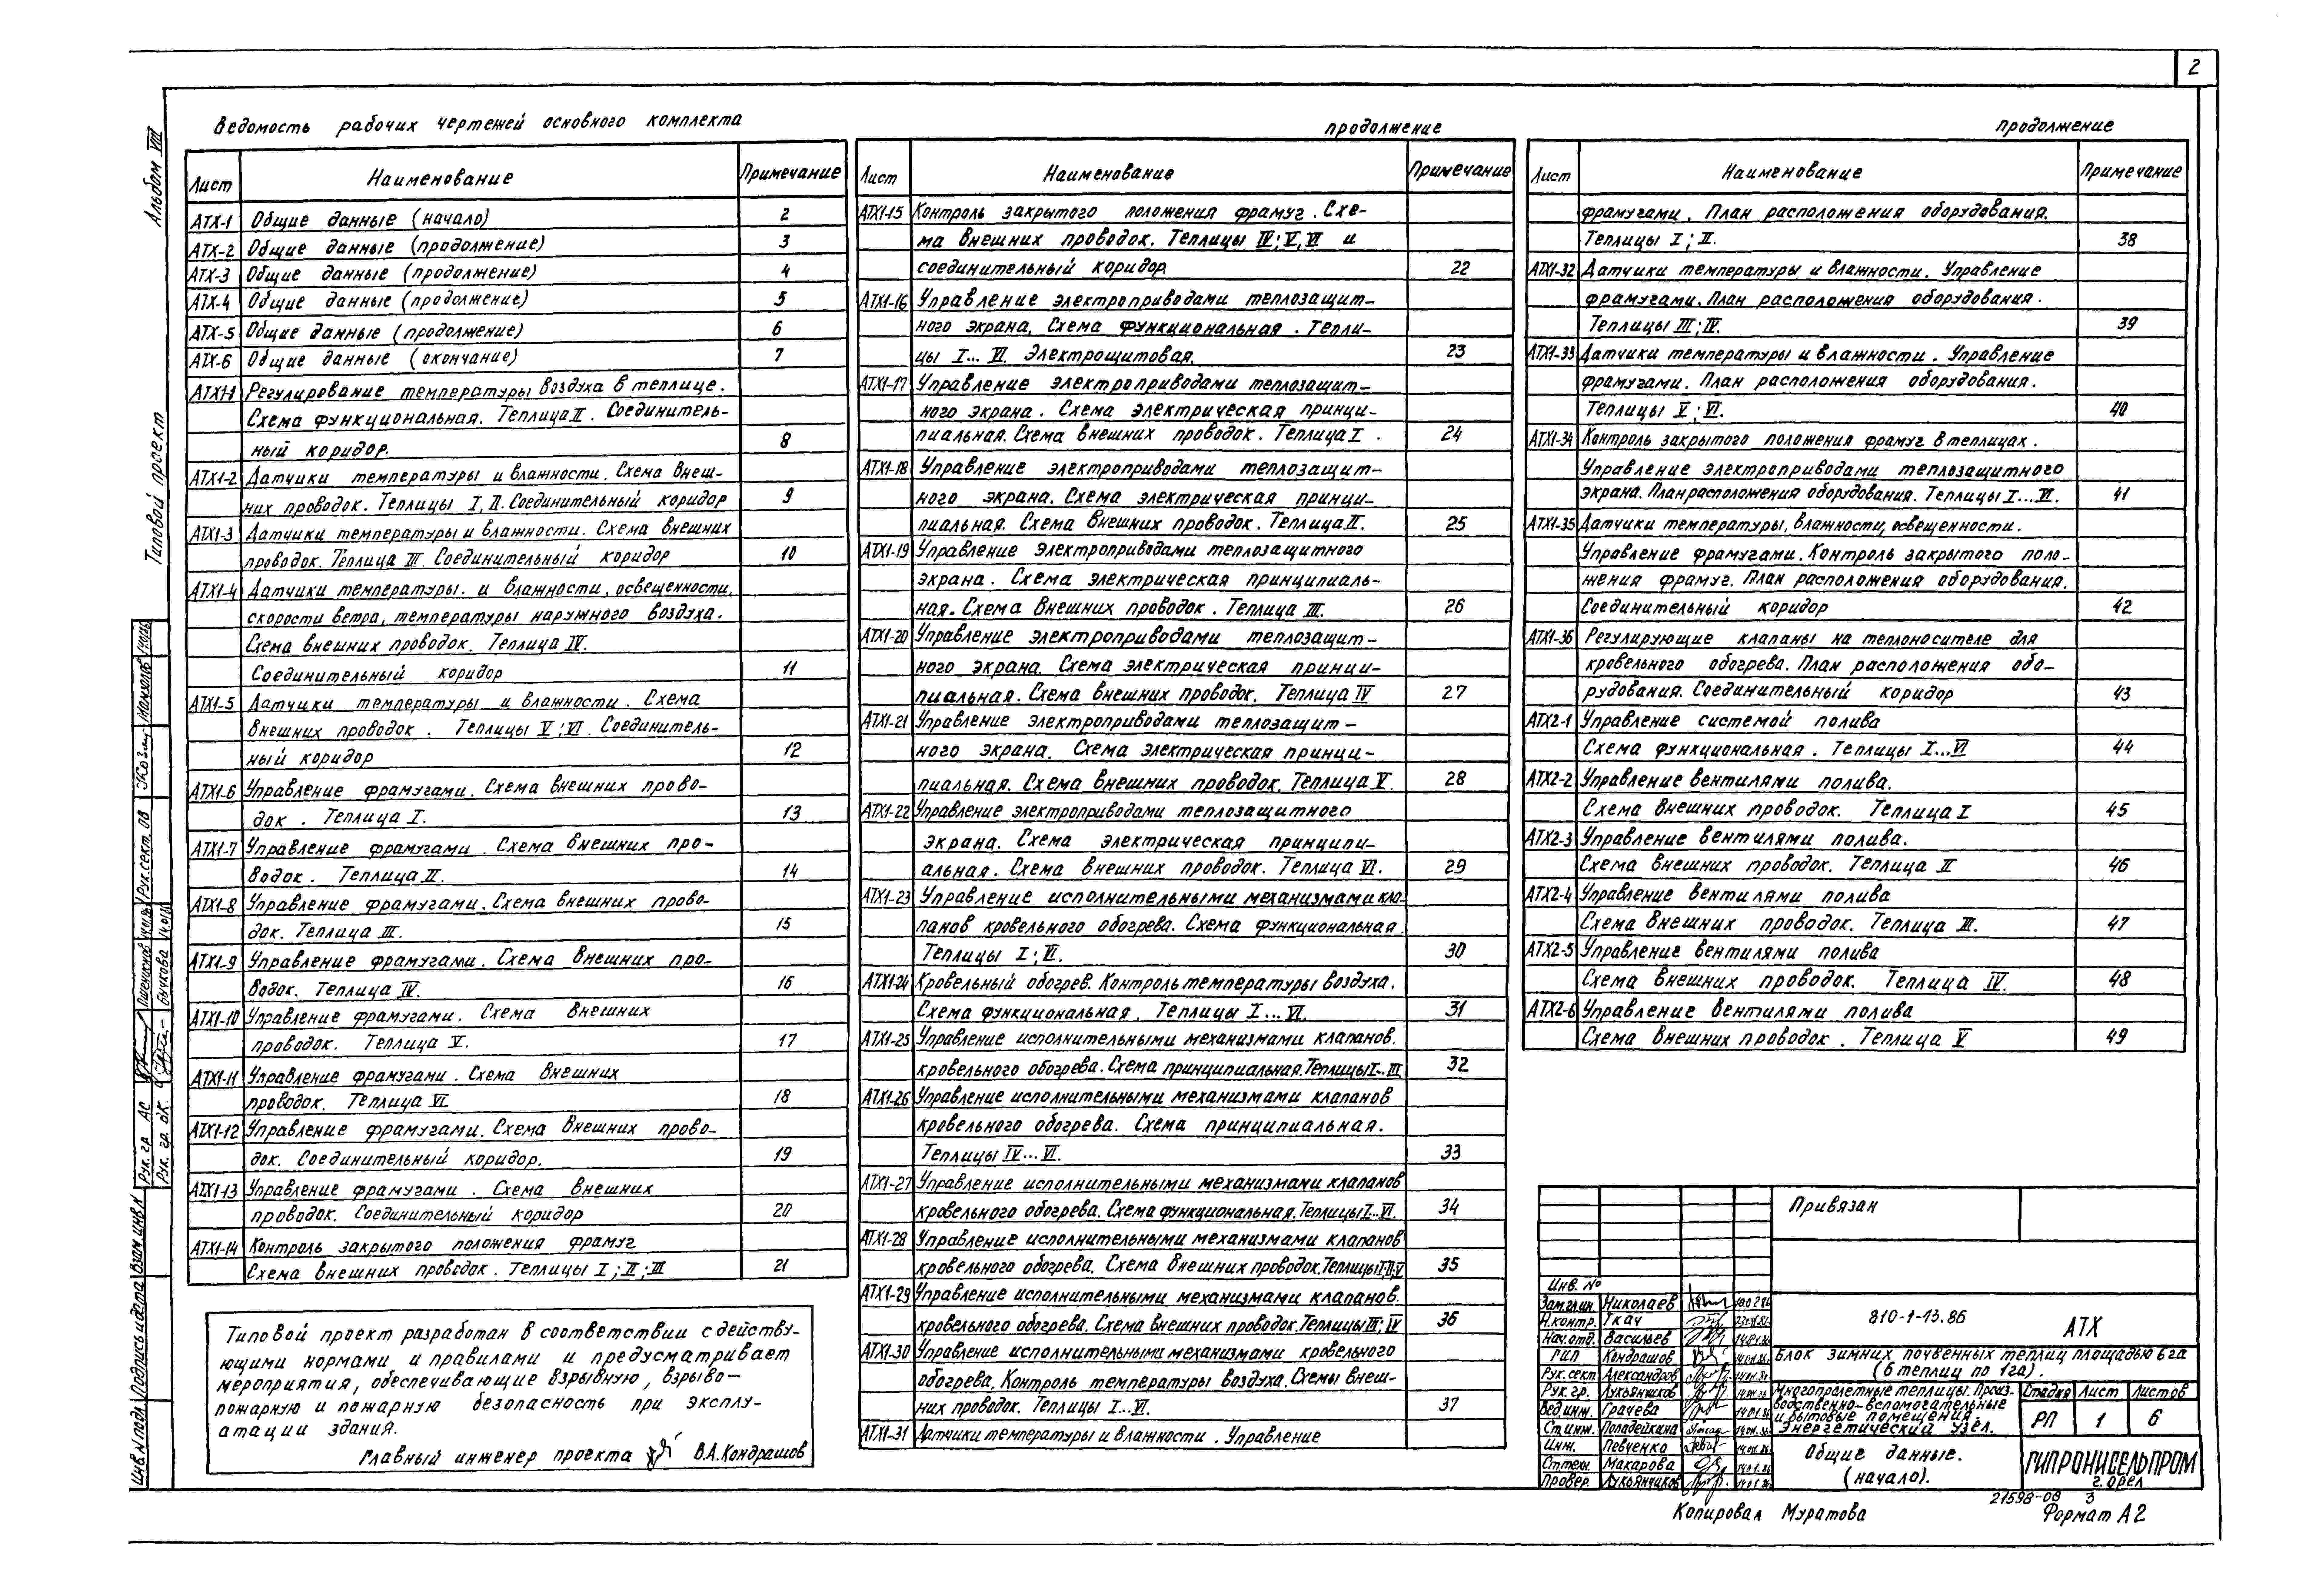 2
Альбом VIII
Типовой проект
Ведомость рабочих чертежей основного комплекта
Лист Наименование Примечание
АТХ-1 Общие данные (начало) 2
АТХ-2 Общие данные (продолжение) 3
АТХ-3 Общие данные (продолжение) 4
АТХ-4 Общие данные (продолжение) 5
АТХ-5 Общие данные (продолжение) 6
АТХ-6 Общие данные (окончание) 7
АТХ1-1 Регулирование температуры воздуха в теплице.
Схема функциональная. Теплица II. Соединитель-
ный коридор. 8
АТХ1-2 Датчики температуры и влажности. Схема внеш-
них проводок. Теплицы I, II. Соединительный коридор 9
АТХ1-3 Датчики температуры и влажности. Схема внешних
проводок. Теплица III. Соединительный коридор 10
АТХ1-4 Датчики температуры. и влажности, освещенности,
скорости ветра, температуры наружного воздуха.
Схема внешних проводок. Теплица IV.
Соединительный коридор 11
АТХ1-5 Датчики температуры и влажности. Схема
внешних проводок. Теплицы V; VI. Соединитель-
ный коридор 12
АТХ1-6 Управление фрамугами. Схема внешних прово-
док. Теплица I. 13
АТХ1-7 Управление фрамугами. Схема внешних про-
водок. Теплица II. 14
АТХ1-8 Управление фрамугами. Схема внешних прово-
док. Теплица III. 15
АТХ1-9 Управление фрамугами. Схема внешних про-
водок. Теплица IV. 16
АТХ1-10 Управление фрамугами. Схема внешних
проводок. Теплица V. 17
АТХ1-11 Управление фрамугами. Схема внешних
проводок. Теплица VI. 18
АТХ1-12 Управление фрамугами. Схема внешних прово-
док. Соединительный коридор. 19
АТХ1-13 Управление фрамугами. Схема внешних
проводок. Соединительный коридор 20
АТХ1-14 Контроль закрытого положения фрамуг
Схема внешних проводок. Теплицы I; II; III 21
Типовой проект разработан в соответствии с действу-
ющими нормами и правилами и предусматривает
мероприятия, обеспечивающие взрывную, взрыво-
пожарную и пожарную безопасность при эксплу-
атации здания.
Главный инженер проекта В.А. Кондрашов
продолжение
Лист Наименование Примечание
АТХ1-15 Контроль закрытого положения фрамуг. Схе-
ма внешних проводок. Теплицы IV; V, VI и
соединительный коридор. 22
АТХ1-16 Управление электроприводами теплозащит-
ного экрана. Схема функциональная. Тепли-
цы I... VI. Электрощитовая. 23
АТХ1-17 Управление электроприводами теплозащит-
ного экрана. Схема электрическая принци-
пиальная. Схема внешних проводок. Теплица I. 24
АТХ1-18 Управление электроприводами теплозащит-
ного экрана. Схема электрическая принци-
пиальная. Схема внешних проводок. Теплица II. 25
АТХ1-19 Управление электроприводами теплозащитного
экрана. Схема электрическая принципиаль-
ная. Схема внешних проводок. Теплица III. 26
АТХ1-20 Управление электроприводами теплозащит-
ного экрана. Схема электрическая принци-
пиальная. Схема внешних проводок. Теплица IV 27
АТХ1-21 Управление электроприводами теплозащит-
ного экрана. Схема электрическая принци-
пиальная. Схема внешних проводок. Теплица V. 28
АТХ1-22 Управление электроприводами теплозащитного
экрана. Схема электрическая принципи-
альная. Схема внешних проводок. Теплица VI. 29
АТХ1-23 Управление исполнительными механизмами кла-
панов кровельного обогрева. Схема функциональная.
Теплицы I; VI. 30
АТХ1-24 Кровельный обогрев. Контроль температуры воздуха.
Схема функциональная. Теплицы I...VI. 31
АТХ1-25 Управление исполнительными механизмами клапанов.
кровельного обогрева. Схема принципиальная. Теплицы I...III 32
АТХ1-26 Управление исполнительными механизмами клапанов
кровельного обогрева. Схема принципиальная.
Теплицы IV...VI. 33
АТХ1-27 Управление исполнительными механизмами клапанов
кровельного обогрева. Схема функциональная. Теплицы I...VI. 34
АТХ1-28 Управление исполнительными механизмами клапанов
кровельного обогрева. Схема внешних проводок. Теплицы 35
АТХ1-29 Управление исполнительными механизмами клапанов.
кровельного обогрева. Схема внешних проводок. Теплицы III; IV 36
АТХ1-30 Управление исполнительными механизмами кровельного
обогрева. Контроль температуры воздуха. Схемы внеш-
них проводок. Теплицы I...VI. 37
АТХ1-31 Датчики температуры и влажности. Управление
продолжение
Лист Наименование Примечание
фрамугами. План расположения оборудования.
Теплицы I; II. 38
АТХ1-32 Датчики температуры и влажности. Управление
фрамугами. План расположения оборудования.
Теплицы III; IV. 39
АТХ1-33 Датчики температуры и влажности. Управление
фрамугами. План расположения оборудования.
Теплицы V; VI. 40
АТХ1-34 Контроль закрытого положения фрамуг в теплицах.
Управление электроприводами теплозащитного
экрана. План расположения оборудования. Теплицы I...VI. 41
АТХ1-35 Датчики температуры, влажности, освещенности.
Управление фрамугами. Контроль закрытого поло-
жения фрамуг. План расположения оборудования.
Соединительный коридор 42
АТХ1-36 Регулирующие клапаны на теплоносителе для
кровельного обогрева. План расположения обо-
рудования. Соединительный коридор 43
АТХ2-1 Управление системой полива
Схема функциональная. Теплицы I...VI 44
АТХ2-2 Управление вентилями полива.
Схема внешних проводок. Теплица I 45
АТХ2-3 Управление вентилями полива.
Схема внешних проводок. Теплица II 46
АТХ2-4 Управление вентилями полива
Схема внешних проводок. Теплица III. 47
АТХ2-5 Управление вентилями полива
Схема внешних проводок. Теплица IV. 48
АТХ2-6 Управление вентилями полива
Схема внешних проводок. Теплица V 49
Привязан
Инв. №
Зам.гл.ин. Николаев
Н.контр. Ткач
Нач.отд. Васильев
ГИП Кондрашов
Рук.сект. Александров
Рук.гр. Лукьянчиков
Вед.инж. Грачева
Ст.инж. Попадейкина
Инж. Левченко
Ст.техн. Макарова
Провер. Лукьянчиков
810-1-13.86 АТХ
Блок зимних почвенных теплиц площадью 6га
(6 теплиц по 1га).
Многопролетные теплицы. Произ-
водственно-вспомогательные
и бытовые помещения.
Энергетический узел.
Стадия Лист Листов
РП 1 6
Общие данные.
(начало).
ГИПРОНИСЕЛЬПРОМ
г. Орел
21598-08 3
Копировал Муратова
Формат А2
Рук. гр. АС
Рук. гр. ОК
Рук. сект. ОВ
Бычкова
Инв. № подл. Подпись и дата Взам. инв. №